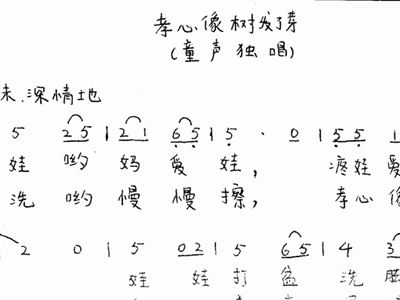 孝心像树发了芽
(童声独唱)
味.深情地
5 2 5 | 2 1 6 5 | 5 · 0 | 5 5 1
娃 哟 妈 爱 娃, 疼娃爱
洗 哟 慢 慢 擦, 孝心像
2 0 | 5 0 2 | 5 6 5 | 4 3
娃 娃 打 盆 洗